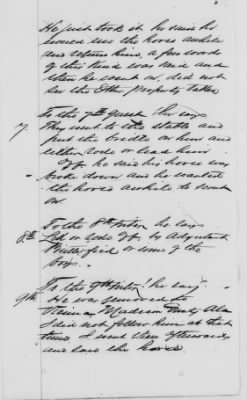 He just took it he said he
would use the horse awhile
and return him, a few words
of this kind was said and
then he went on, did not
see the other property taken
7. To the 7th quest he says
They went to the stable and
put the bridle on him and
either rode or lead him
off. he said his horse was
broke down and he wanted
the horse awhile to went
on
8th To the 8th Inter he says
Led or rode off by Adjutant
or some of the
boys.
9th To the 9th Inter he says
He was removed to
Madison County Ala
I did not follow him at that
time I went then afterwards
and saw the horse